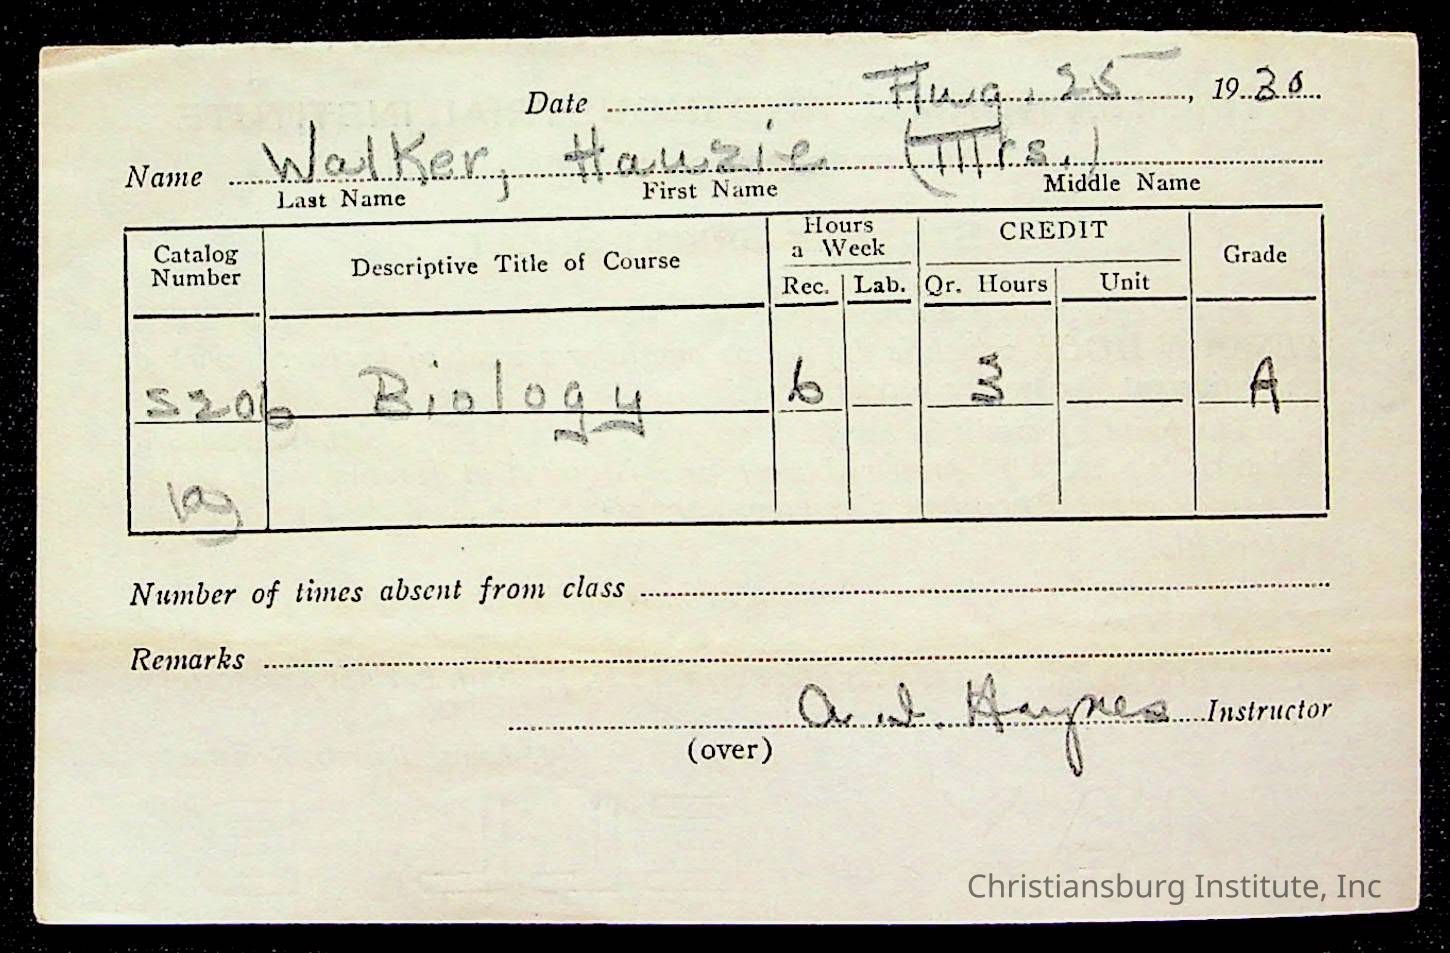 Date Aug. 25, 1930
Name Walker, Hauzie (Mrs.)
Last Name First Name Middle Name
Catalog Number Descriptive Title of Course Hours a Week Rec. Lab. CREDIT Qr. Hours Unit Grade
S206 Biology 6 3 A
Number of times absent from class
Remarks
A. I. Haynes Instructor
(over)
Christiansburg Institute, Inc